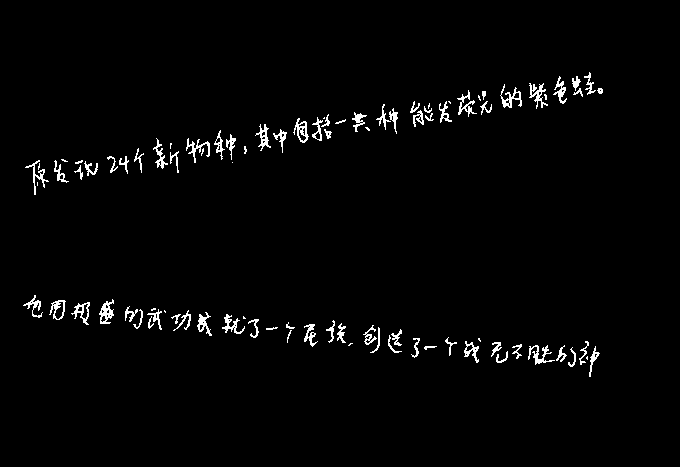 原发现24个新物种,其中包括一共种能发荧光的紫色蛙。
他用极盛的武功成就了一个尾统,创造了一个战无不胜的神